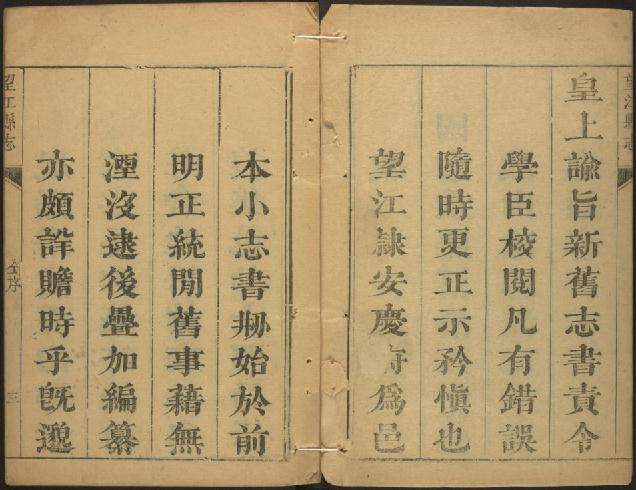 皇上諭旨新舊志書責令
學臣校閱凡有錯誤
隨時更正示矜慎也
望江隸安慶府為邑
本小志書刱始於前
明正統閒舊事藉無
湮沒逮後疊加編纂
亦頗詳贍時乎旣邈
望江縣志
全序
三
望江縣志